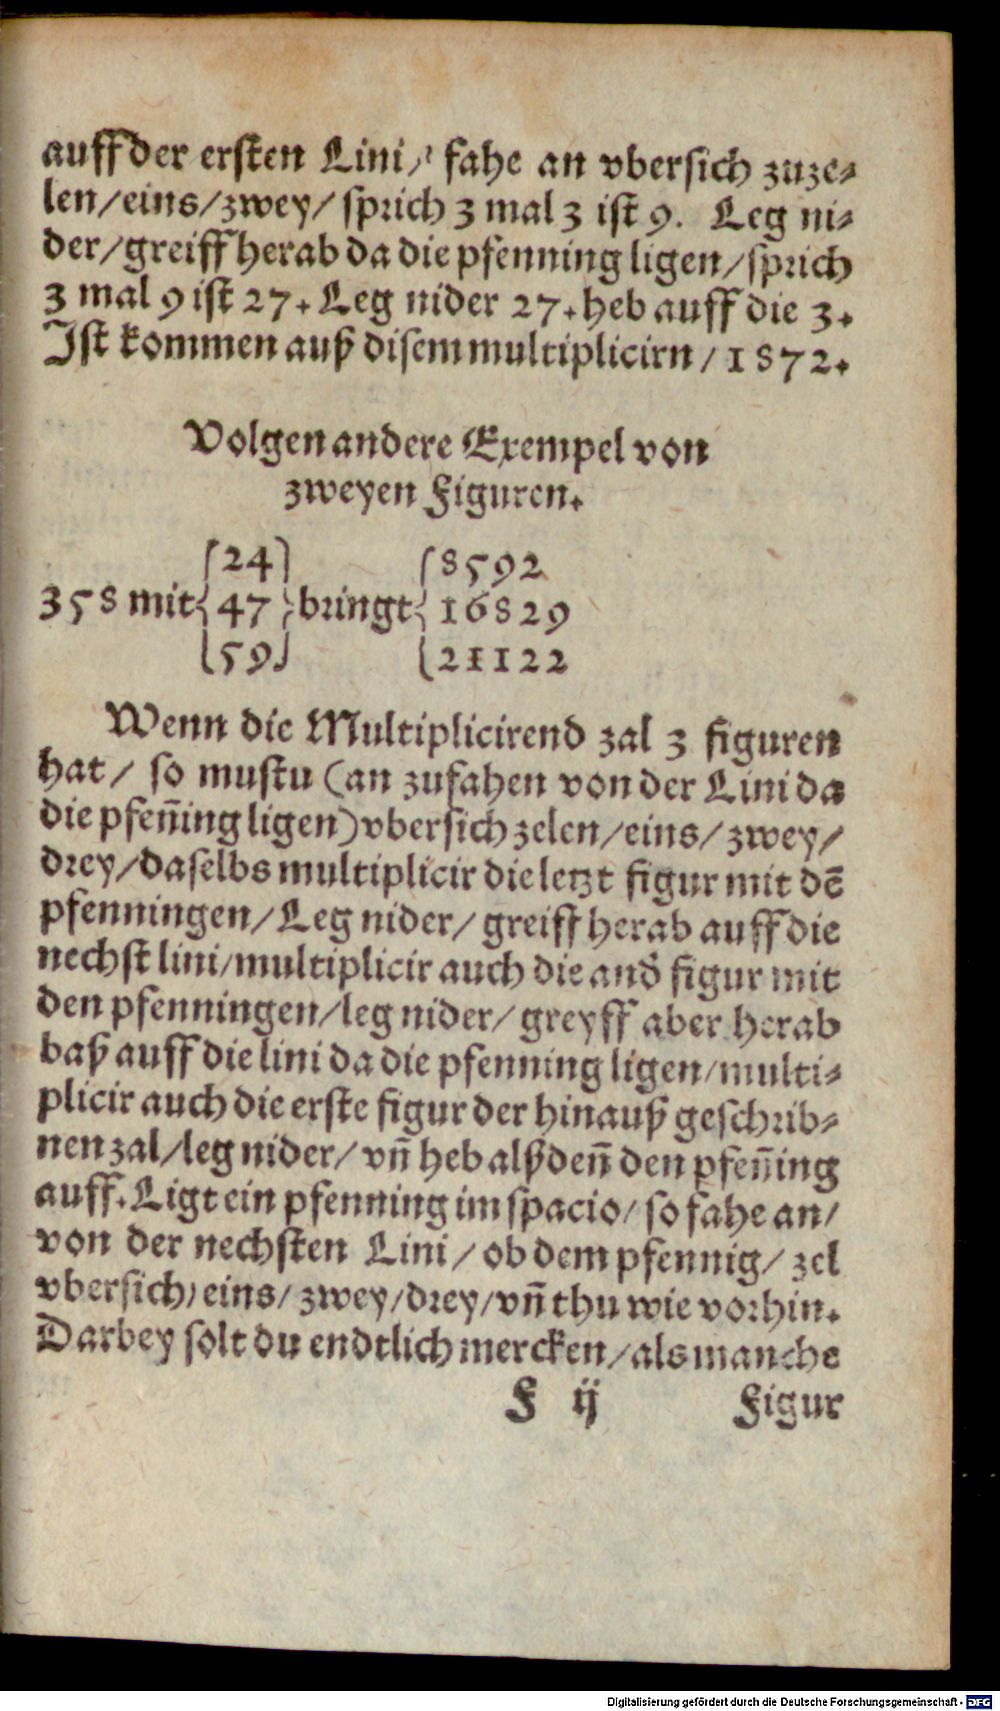 auff der ersten Lini / fahe an vbersich zuze⸗
len / eins / zwey / sprich 3 mal 3 ist 9. Leg ni⸗
der / greiff herab da die pfenning ligen / sprich
3 mal 9 ist 27. Leg nider 27. heb auff die 3.
Ist kommen auß disem multiplicirn / 1872.
Volgen andere Exempel von
zweyen Figuren.
24 8592
358 mit 47 bringt 16829
59 21122
Wenn die Multiplicirend zal 3 figuren
hat / so mustu (an zufahen von der Lini da
die pfen̄ing ligen) vbersich zelen / eins / zwey /
drey / daselbs multiplicir die letzt figur mit dē
pfenningen / Leg nider / greiff herab auff die
nechst lini / multiplicir auch die and̕ figur mit
den pfenningen / leg nider / greyff aber herab
baß auff die lini da die pfenning ligen / multi⸗
plicir auch die erste figur der hinauß geschrib⸗
nen zal / leg nider / vn̄ heb alßden̄ den pfen̄ing
auff. Ligt ein pfenning im spacio / so fahe an /
von der nechsten Lini / ob dem pfennig / zel
vbersich / eins / zwey / drey / vn̄ thu wie vorhin.
Darbey solt du endtlich mercken / als manche
F ij Figur
Digitalisierung gefördert durch die Deutsche Forschungsgemeinschaft - DFG